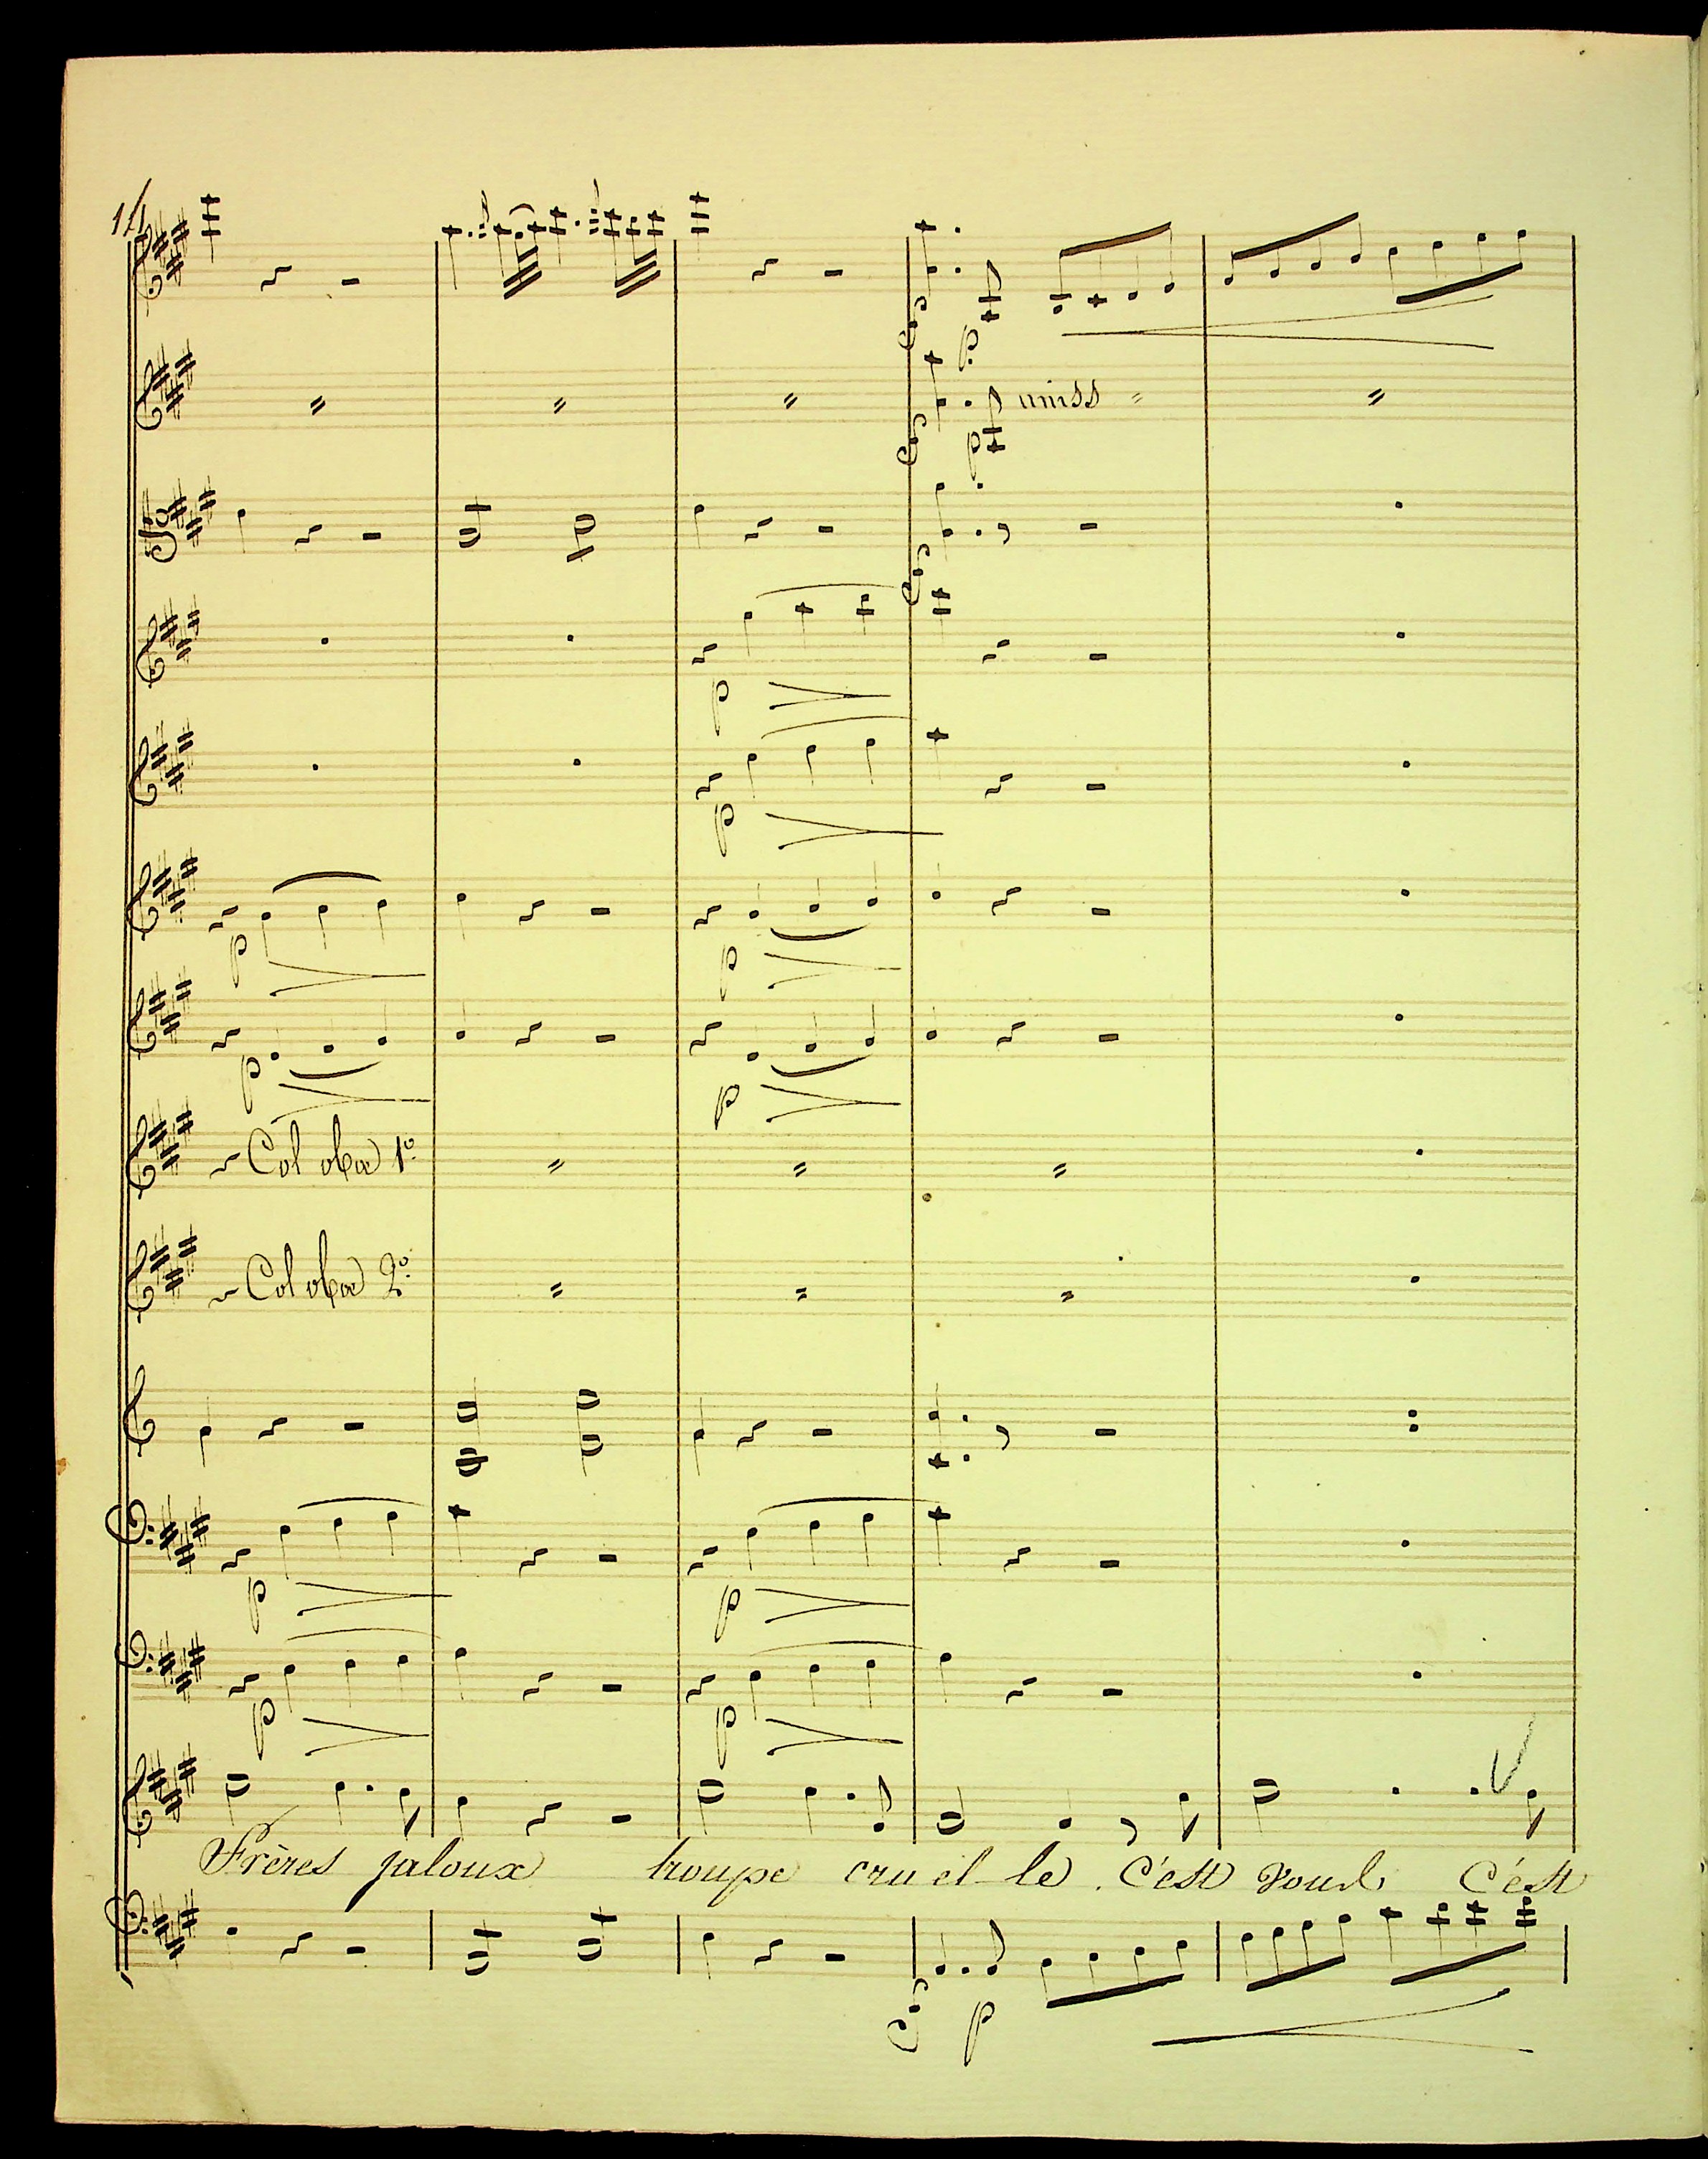 p
p
uniss
p
p
p
p
p
p
p
Col oboe 1º
Col oboe 2º
p
p
p
p
Frères jaloux troupe cru el-le. C'est vous C'est
p